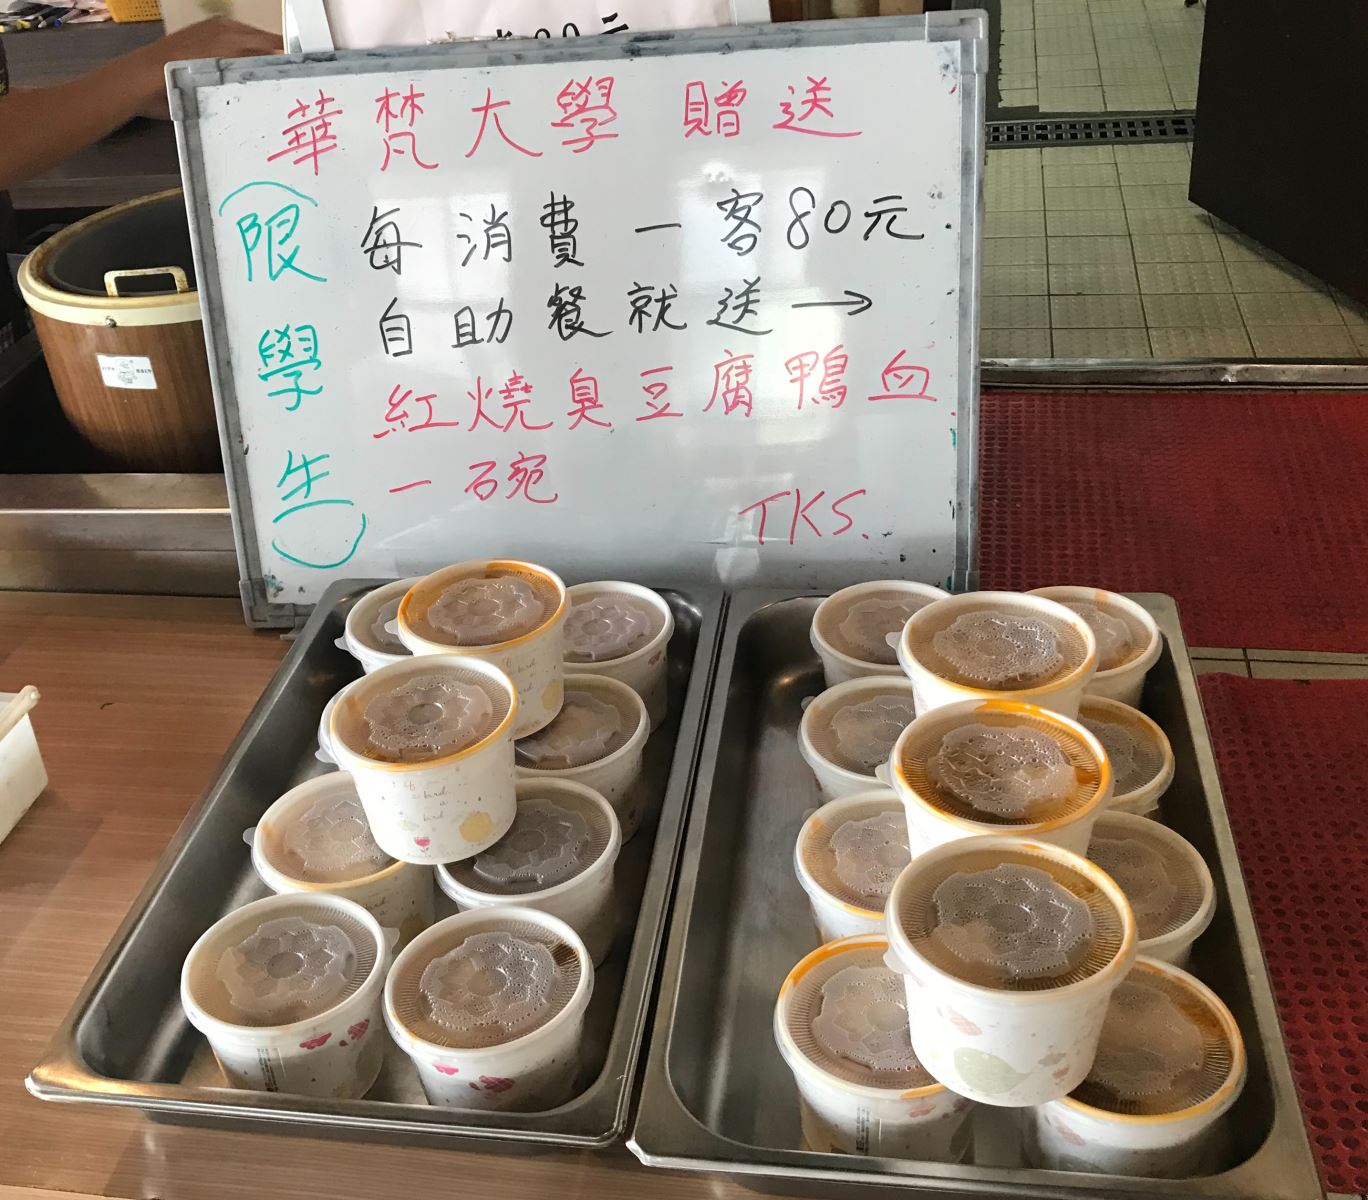 華梵大學 贈送
(限學生)
每消費一客80元
自助餐就送→
紅燒臭豆腐鴨血
一碗
TKS.